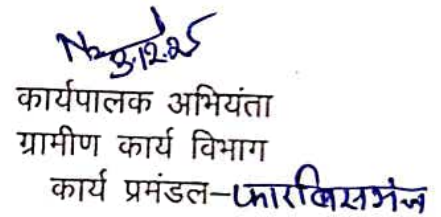 3.12.25
कार्यपालक अभियंता
ग्रामीण कार्य विभाग
कार्य प्रमंडल-फारबिसगंज